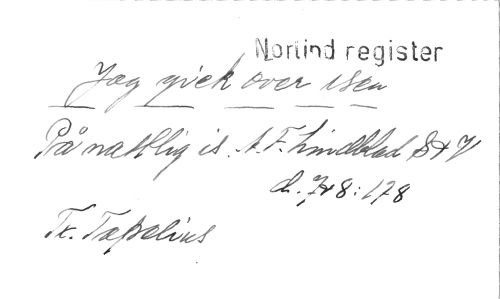 Norlind register
Jag gick över isen
På nattlig is. A. F. Lindblad S & V
d. 7 & 8: 178
Fr. Topelius